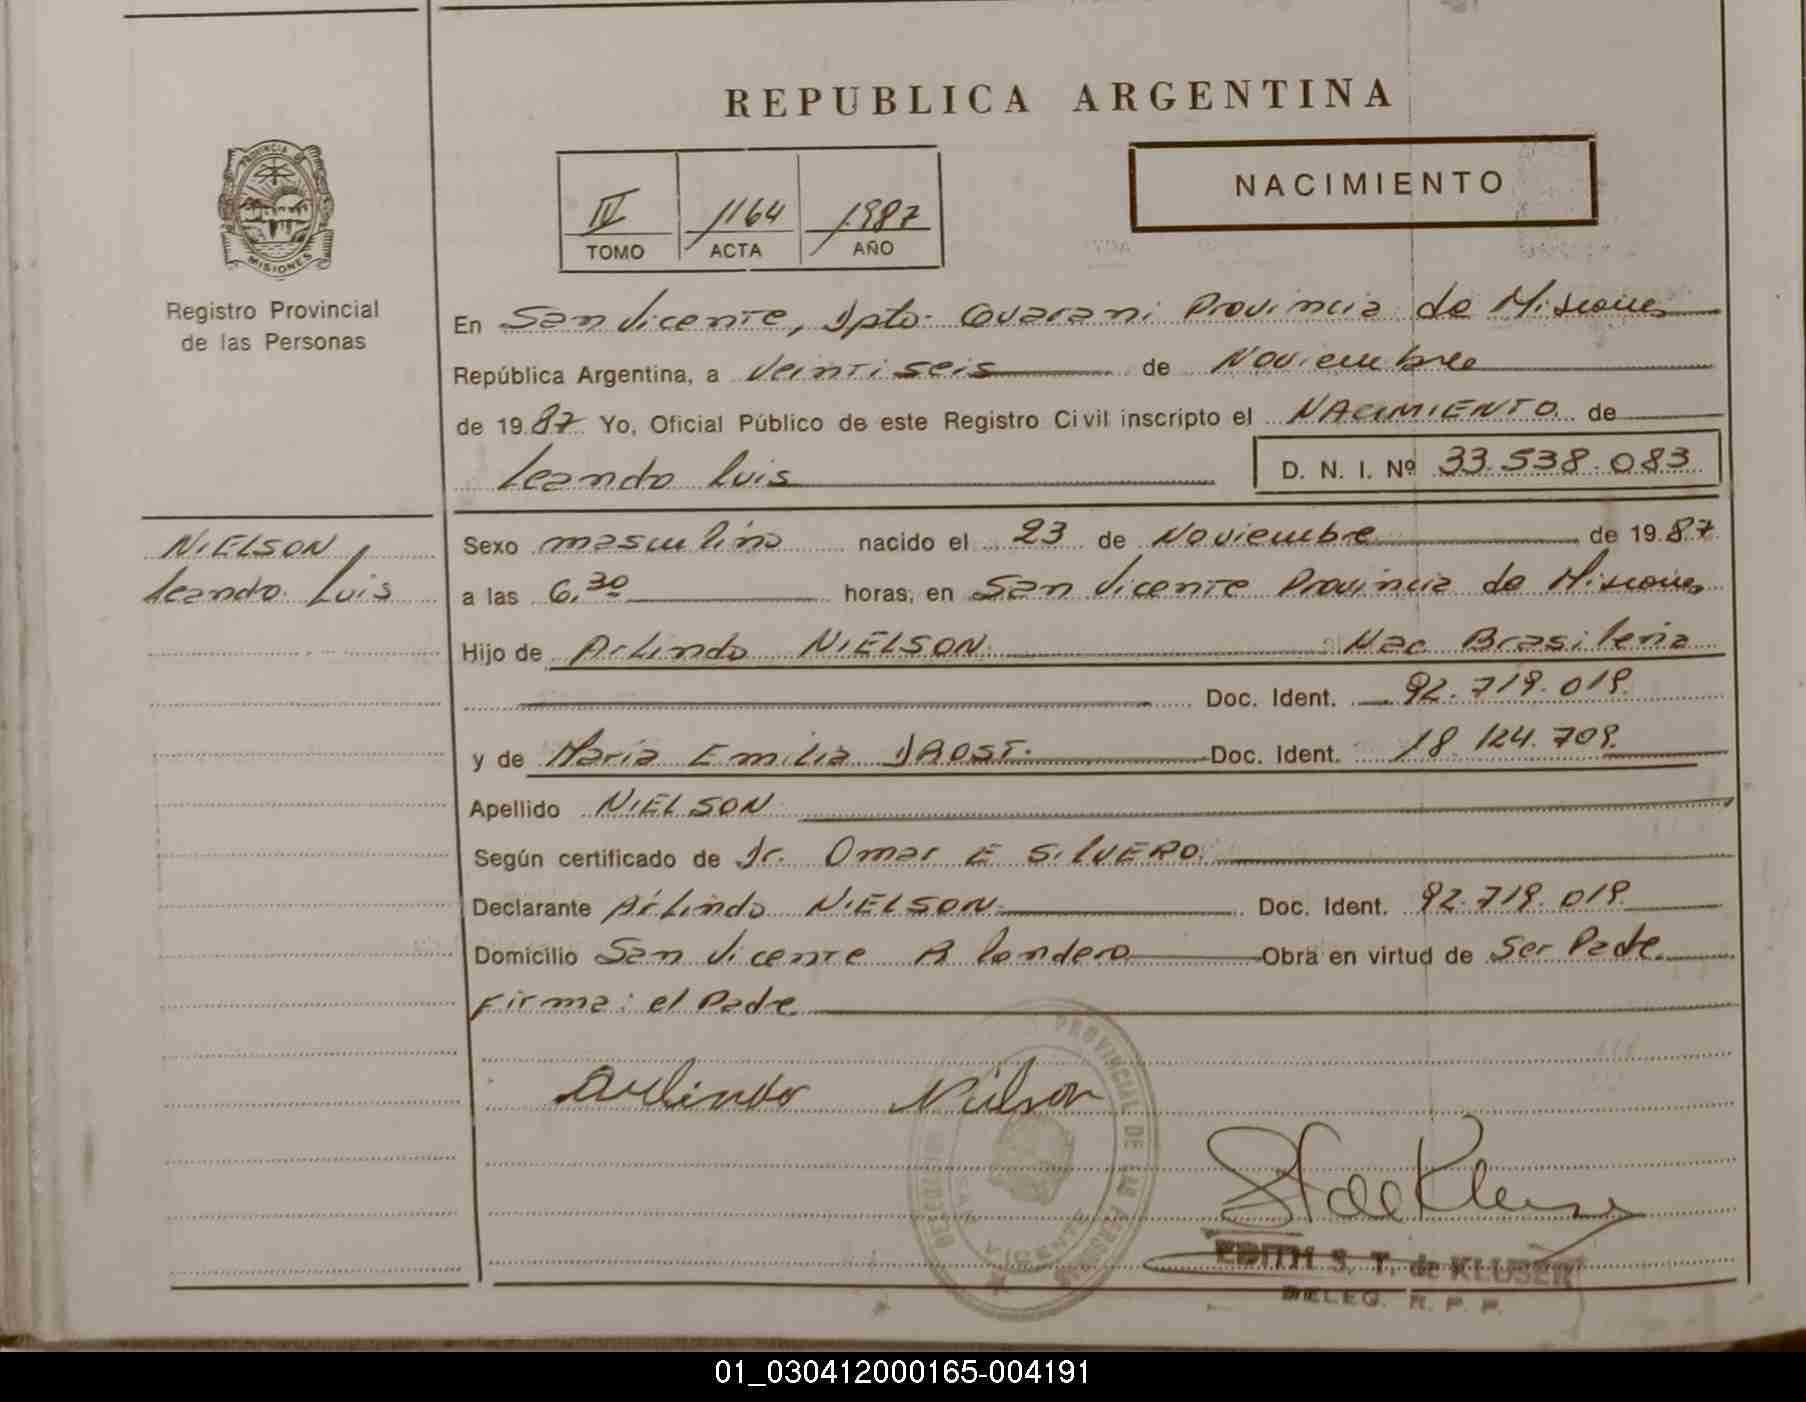 REPUBLICA ARGENTINA
PROVINCIA DE
MISIONES
Registro Provincial
de las Personas
IV 1164 1987
TOMO ACTA AÑO
NACIMIENTO
En San Vicente, Dpto. Guarani Provincia de Misiones
República Argentina, a Veintiseis de Noviembre
de 1987 Yo, Oficial Público de este Registro Civil inscripto el NACIMIENTO de
Leandro Luis D. N. I. Nº 33.538.083
NIELSON
Leandro Luis
Sexo masculino nacido el 23 de Noviembre de 1987
a las 6,30 horas, en San Vicente Provincia de Misiones
Hijo de Arlindo NIELSON Nac Brasileria
Doc. Ident. 92.719.019
y de Maria Emilia DAOST. Doc. Ident. 18.124.709
Apellido NIELSON
Según certificado de Dr. Omar E SilVERO
Declarante Arlindo NIELSON Doc. Ident. 92.719.019
Domicilio San Vicente Obra en virtud de Ser Padre
Firma: el Padre
Arlindo Nielson
PROVINCIAL DE LAS PERSONAS
SAN VICENTE
EDITH S. T. de KLUSER
DELEG. R. P. P.
01_030412000165-004191